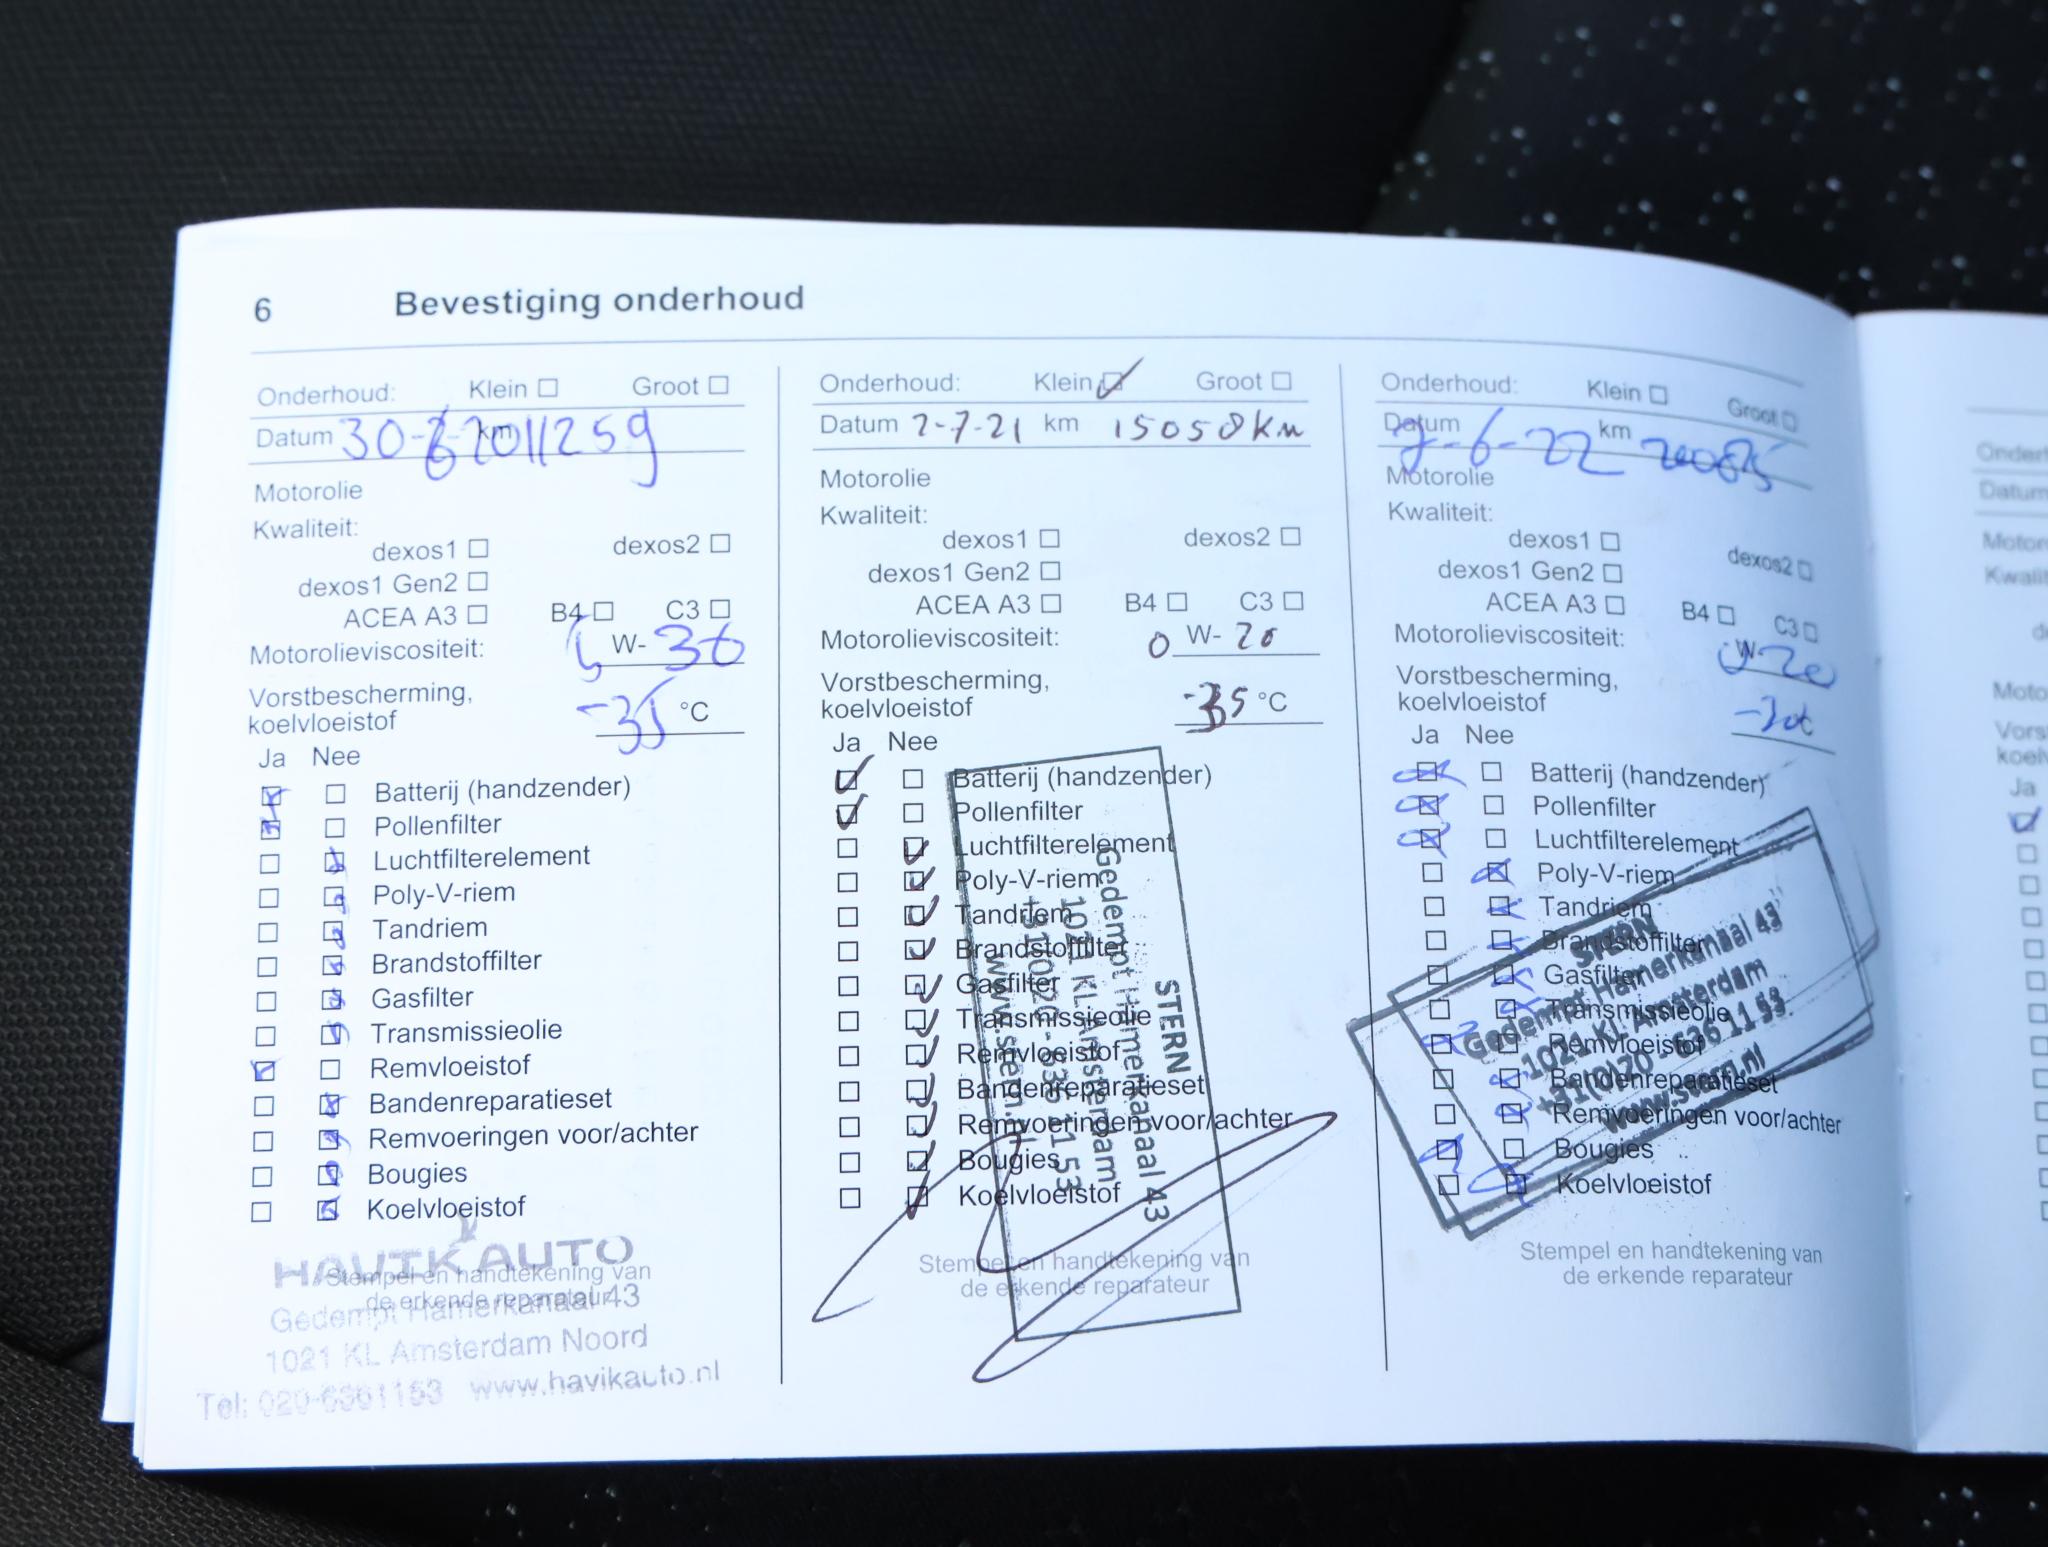 6 Bevestiging onderhoud
Onderhoud: Klein Groot
Datum km 11259
Motorolie
Kwaliteit:
dexos1 dexos2
dexos1 Gen2
ACEA A3 B4 C3
Motorolieviscositeit: 5 W- 30
Vorstbescherming,
koelvloeistof -35 °C
Ja Nee
Batterij (handzender)
Pollenfilter
Luchtfilterelement
Poly-V-riem
Tandriem
Brandstoffilter
Gasfilter
Transmissieolie
Remvloeistof
Bandenreparatieset
Remvoeringen voor/achter
Bougies
Koelvloeistof
HAVIK AUTO
Stempel en handtekening van
de erkende reparateur
Gedempt Hamerkanaal 43
1021 KL Amsterdam Noord
Tel: 020-6361153 www.havikauto.nl
Onderhoud: Klein Groot
Datum 2-7-21 km 15058 km
Motorolie
Kwaliteit:
dexos1 dexos2
dexos1 Gen2
ACEA A3 B4 C3
Motorolieviscositeit: 0 W- 20
Vorstbescherming,
koelvloeistof -35 °C
Ja Nee
Batterij (handzender)
Pollenfilter
Luchtfilterelement
Poly-V-riem
Tandriem
Brandstoffilter
Gasfilter
Transmissieolie
Remvloeistof
Bandenreparatieset
Remvoeringen voor/achter
Bougies
Koelvloeistof
STERN
Gedempt Hamerkanaal 43
1021 KL Amsterdam
+31(0)20 - 636 11 53
www.stern.nl
Stempel en handtekening van
de erkende reparateur
Onderhoud: Klein Groot
Datum 7-6-22 km 20085
Motorolie
Kwaliteit:
dexos1 dexos2
dexos1 Gen2
ACEA A3 B4 C3
Motorolieviscositeit: 0 W- 20
Vorstbescherming,
koelvloeistof
Ja Nee
Batterij (handzender)
Pollenfilter
Luchtfilterelement
Poly-V-riem
Tandriem
Brandstoffilter
Gasfilter
Transmissieolie
Remvloeistof
Bandenreparatieset
Remvoeringen voor/achter
Bougies
Koelvloeistof
STERN
Gedempt Hamerkanaal 43
1021 KL Amsterdam
+31(0)20 - 636 11 53
www.stern.nl
Stempel en handtekening van
de erkende reparateur
Ja